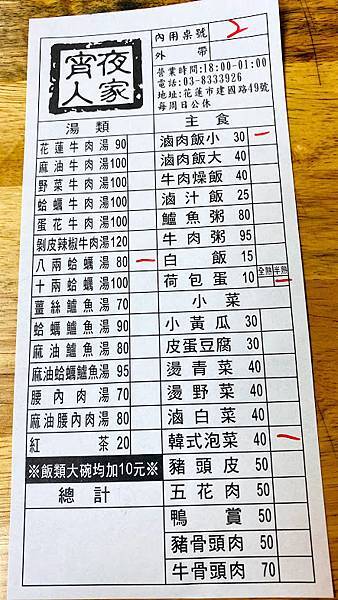 宵夜人家
內用桌號 2
外帶
營業時間:18:00-01:00
電話:03-8333926
地址:花蓮市建國路49號
每周日公休
湯類
花蓮牛肉湯 90
麻油牛肉湯100
野菜牛肉湯100
蛤蠣牛肉湯100
蛋花牛肉湯100
剝皮辣椒牛肉湯120
八兩蛤蠣湯 80 一
十兩蛤蠣湯100
薑絲鱸魚湯 70
蛤蠣鱸魚湯 90
麻油鱸魚湯 80
麻油蛤蠣鱸魚湯 95
腰內肉湯 70
麻油腰內肉湯 80
紅茶 20
※飯類大碗均加10元※
總計
主食
滷肉飯小 30 一
滷肉飯大 40
牛肉燥飯 40
滷汁飯 25
鱸魚粥 80
牛肉粥 95
白飯 15
荷包蛋 10 全熟 半熟 一
小菜
小黃瓜 30
皮蛋豆腐 30
燙青菜 40
燙野菜 40
滷白菜 40
韓式泡菜 40 一
豬頭皮 50
五花肉 50
鴨賞 50
豬骨頭肉 50
牛骨頭肉 70